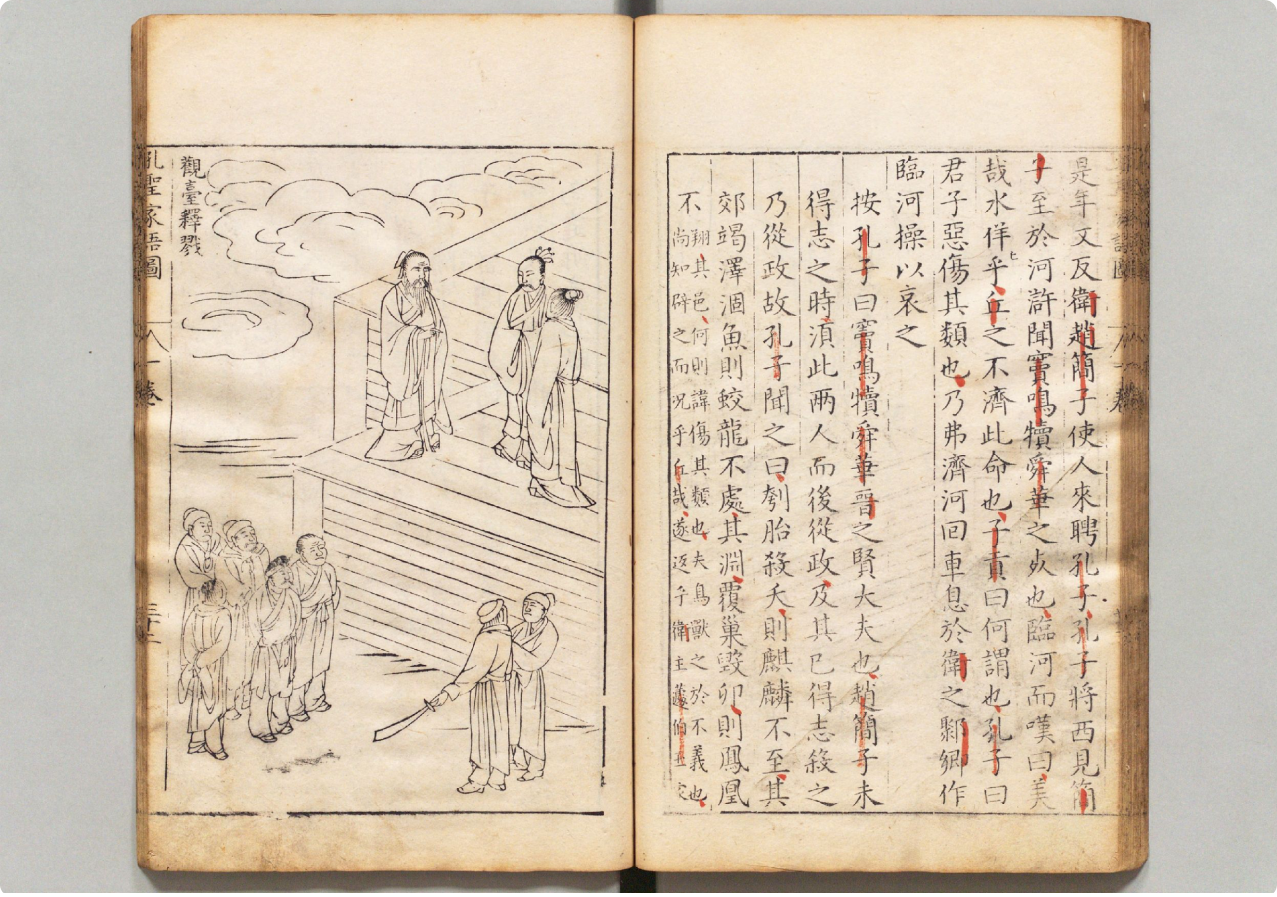 是年又反衛趙簡子使人來聘孔子孔子將西見簡
子至於河滸聞竇鳴犢舜華之死也臨河而嘆曰美
哉水佯乎丘之不濟此命也子貢曰何謂也孔子曰
君子惡傷其類也乃弗濟河回車息於衛之鄹鄉作
臨河操以哀之
按孔子曰竇鳴犢舜華晉之賢大夫也趙簡子未
得志之時湏此兩人而後從政及其已得志殺之
乃從政故孔子聞之曰刳胎殺夭則麒麟不至其
郊竭澤涸魚則蛟龍不處其淵覆巢毀卵則鳳凰
不
翔其邑何則諱傷其類也夫鳥獸之於不義也
尚知辟之而况乎丘哉遂返乎衛主蘧伯玉家
觀臺釋戮
孔聖家語圖
卷一
三十二